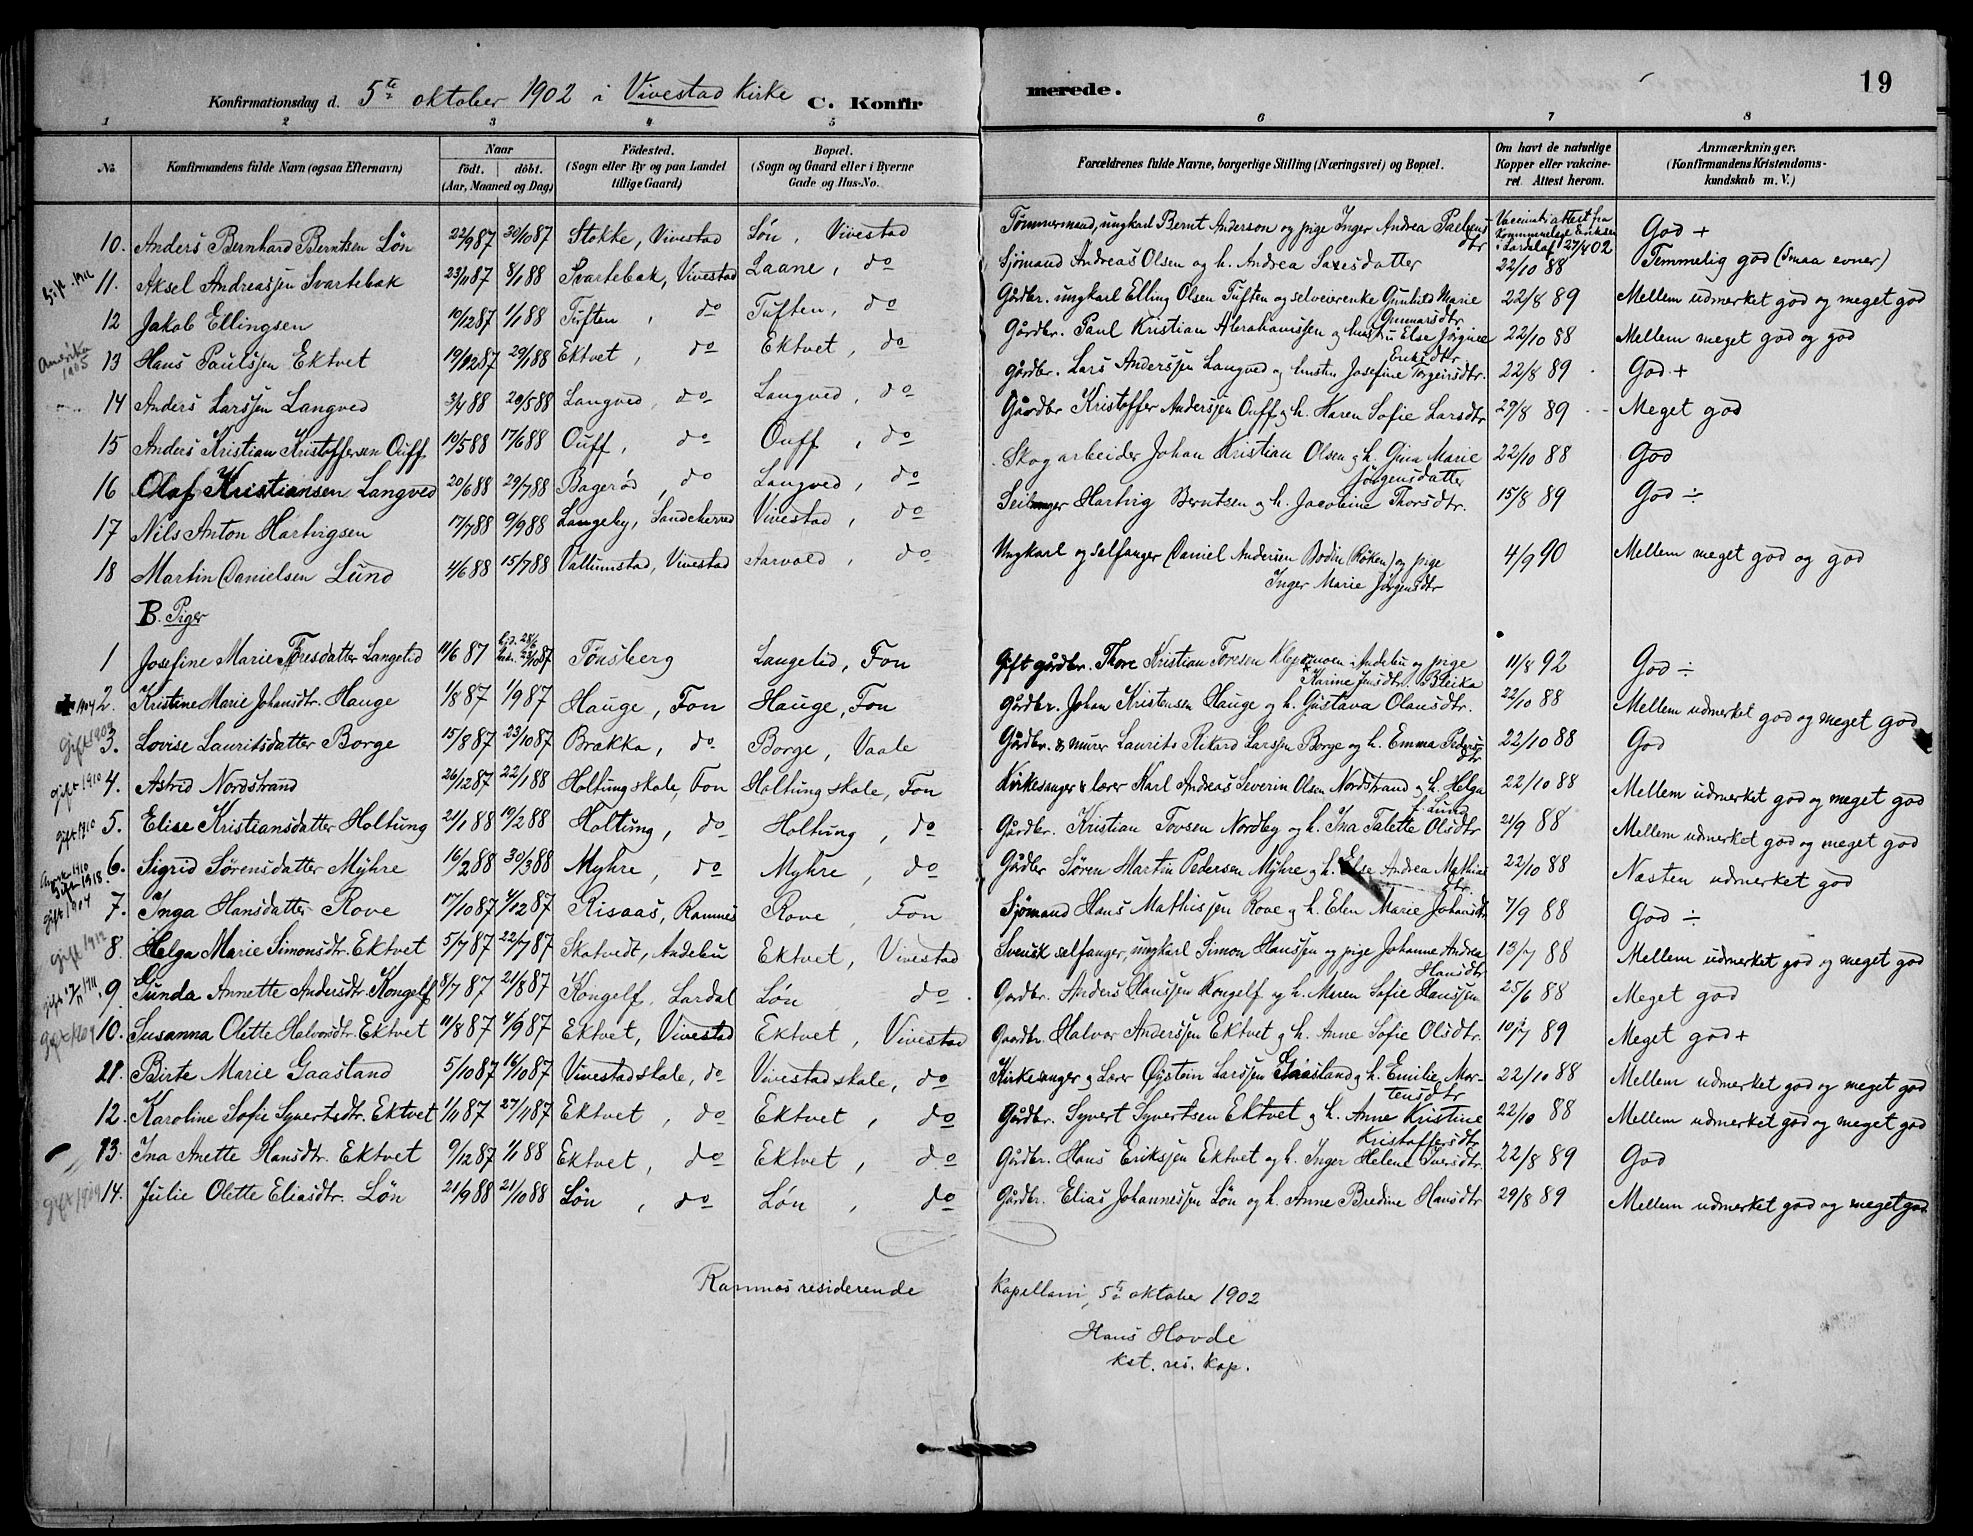 Konfirmationsdag d. 5te oktober 1902 i Vivestad Kirke C. Konfir merede. 19
1 2 3 4 5 6 7 8
No. Konfirmandens fulde Navn (ogsaa Efternavn) Naar födt. döbt. (Aar, Maaned og Dag) Födested. (Sogn eller By og paa Landet tillige Gaard) Bopæl. (Sogn og Gaard eller i Byerne Gade og Hus-No. Forældrenes fulde Navne, borgerlige Stilling (Næringsvei) og Bopæl. Om havt de naturlige Kopper eller vakcineret. Attest herom. Anmærkninger. (Konfirmandens Kristendomskundskab m. V.)
10. Anders Bernhard Berntsen Løn 22/9 87 30/10 87 Stokke, Vivestad Løn, Vivestad Tømmermand, ungkarl Bernt Anderson og pige Inger Andrea Paulsens dtr Vaccinatiattest fra Kommunelæge Eriksen i Lardal af 27/4 02 God +
11. Aksel Andreassen Svartebak 23/11 87 8/1 88 Svartebak, Vivestad Laane, do Sjømand Andreas Olsen og h. Andrea Saxesdatter 22/10 88 Temmelig god (Smaa evner)
12 Jakob Ellingsen 10/12 87 1/1 88 Tuften, do Tuften, do Gårdbr. ungkarl Elling Olsen Tuften og selveierenke Gunhild Marie Gunnarsdtr. 22/8 89 Mellem udmerket god og meget god
Amerika 1905 13 Hans Paulssen Ektvet 19/12 87 29/1 88 Ektvet, do Ektvet, do Gårdbr. Paul Kristian Abrahamssen og hustru Else Jørgine Eriksdtr 22/10 88 Mellem meget god og god
14 Anders Larssen Langved 3/4 88 20/5 88 Langved, do Langved, do Gårdbr. Lars Anderssen Langved og hustru Josefine Torgeirsdtr. 22/8 89 God +
15 Anders Kristian Kristoffersen Ouff 19/5 88 17/6 88 Ouff, do Ouff, do Gårdbr Kristoffer Anderssen Ouff og h. Karen Sofie Larsdtr 29/8 89 Meget god
16 Olaf Kristiansen Langved 20/6 88 29/7 88 Bagerød, do Langved, do Skogarbeider Johan Kristian Olsen og h. Gina Marie Jørgensdatter 22/10 88 God
17 Nils Anton Hartvigsen 17/7 88 9/9 88 Langeby, Sandeherred Vivestad, do Seilmager Hartvig Berntsen og h. Jacobine Thorsdtr. 15/8 89 God ÷
18 Martin Danielsen Lund 4/6 88 15/7 88 Vallumstad, Vivestad Aarvold, do Ungkarl og selfanger Daniel Andersen Bodin (Røken) og pige Inger Marie Jørgensdtr 4/9 90 Mellem meget god og god
B. Piger
1 Josefine Marie Toresdatter Langelid 11/6 87 23/10 87 Tønsberg Langelid, Fon Gift gårdbr. Thore Kristian Toresen Klepsmoen i Andebu og pige Karine Jensdtr. Bleika 11/8 92 God ÷
1904 2. Kristine Marie Johansdtr. Hauge 1/8 87 1/9 87 Hauge, Fon Hauge, Fon Gårdbr. Johan Kristensen Hauge og h. Gustava Olausdtr. 22/10 88 Mellem udmerket god og meget god
Gift 1903 3. Lovise Lauritsdatter Borge 15/8 87 23/10 87 Brækka, do Borge, Vaale Gårdbr. & murer Laurits Rikard Larssen Borge og h. Emma Pedersdtr 22/10 88 God
gift 1910 4. Astrid Nordstrand 26/12 87 22/1 88 Holtung skole, Fon Holtung skole, Fon Kirkesanger & lærer Karl Andreas Severin Olsen Nordstrand og h. Helga f. Lund 22/10 88 Mellem udmerket god og meget god
gift 1910 5. Elise Kristiansdatter Holtung 21/1 88 19/2 88 Holtung, do Holtung, do Gårdbr. Kristian Tovsen Nordby og h. Ina Talette Olsdtr 2/9 88 Mellem udmerket god og meget god
6. Sigrid Sørensdatter Myhre 16/2 88 30/3 88 Myhre, do Myhre, do Gårdbr Søren Martin Pedersen Myhre og h. Else Andrea Mathiasdtr. 22/10 88 Næsten udmerket god
gift 1904 7. Inga Hansdatter Rove 17/10 87 4/12 87 Risaas, Ramnes Rove, Fon Sjømand Hans Mathissen Rove og h. Elen Marie Johansdtr 7/9 88 God ÷
gift 1912 8. Helga Marie Simonsdtr. Ektvet 5/7 87 22/7 87 Skatvedt, Andebu Ektvet, Vivestad Svensk selfanger, ungkarl Simon Hanssen og pige Johanne Andrea Hansdtr 13/7 88 Mellem udmerket god og meget god
9. Gunda Annette Andersdtr. Kongelf 8/7 87 21/8 87 Kongelf, Lardal Løn do. Gardbr. Anders Hanssen Kongelf og h. Maren Sofie Hanssen 25/6 88 Meget god
gift 1909 10. Susanna Olette Halvorsdtr. Ektvet 11/8 87 4/9 87 Ektvet, Vivestad Ektvet, Vivestad Gaardbr. Halvor Anderssen Ektvet og h. Anne Sofie Olsdtr. 10/7 89 Meget god +
11. Birte Marie Gaasland 5/10 87 16/10 87 Vivestad skole, do Vivestad skole, do Kirkesanger og Lærer Øystein Larssen Gaasland og h. Emilie Mortensdtr 22/10 88 Mellem udmerket god og meget god
12. Karoline Sofie Syvertsdtr. Ektvet 1/11 87 27/11 87 Ektvet, do Ektvet, do Gårdbr. Syvert Syvertsen Ektvet og h. Anne Kristine Kristoffersdtr 22/10 88 Mellem udmerket god og meget god
13. Ina Anette Hansdtr. Ektvet 9/12 87 1/1 88 Ektvet, do Ektvet, do Gårdbr. Hans Erikssen Ektvet og h. Inger Helene Iversdtr. 22/8 89 God
gift 1909 14. Julie Olette Eliasdtr. Løn 21/9 88 21/10 88 Løn, do Løn, do Gårdbr. Elias Johannessen Løn og h. Anne Bredine Hansdtr 29/8 89 Mellem udmerket god og meget god.
Ramnes residerende Kapellani, 5te oktober 1902
Hans Hovde
kst. res. kap.